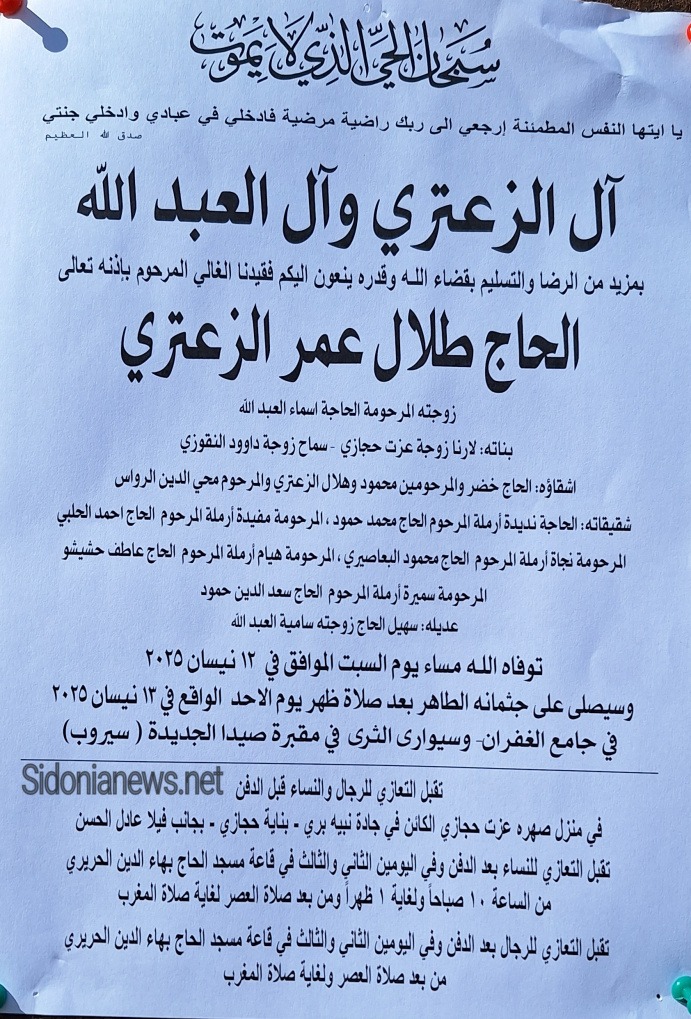 سبحان الحي الذي لا يموت
يا ايتها النفس المطمئنة إرجعي الى ربك راضية مرضية فادخلي في عبادي وادخلي جنتي
صدق الله العظيم
آل الزعتري وآل العبد الله
بمزيد من الرضا والتسليم بقضاء الله وقدره ينعون اليكم فقيدنا الغالي المرحوم بإذنه تعالى
الحاج طلال عمر الزعتري
زوجته المرحومة الحاجة اسماء العبد الله
بناته: لارنا زوجة عزت حجازي - سماح زوجة داوود النقوزي
اشقاؤه: الحاج خضر والمرحومين محمود وهلال الزعتري والمرحوم محي الدين الرواس
شقيقاته: الحاجة نديدة أرملة المرحوم الحاج محمد حمود ، المرحومة مفيدة أرملة المرحوم الحاج احمد الحلبي
المرحومة نجاة أرملة المرحوم الحاج محمود البعاصيري ، المرحومة هيام أرملة المرحوم الحاج عاطف حشيشو
المرحومة سميرة أرملة المرحوم الحاج سعد الدين حمود
عديله: سهيل الحاج زوجته سامية العبد الله
توفاه الله مساء يوم السبت الموافق في ١٢ نيسان ٢٠٢٥
وسيصلى على جثمانه الطاهر بعد صلاة ظهر يوم الاحد الواقع في ١٣ نيسان ٢٠٢٥
في جامع الغفران- وسيوارى الثرى في مقبرة صيدا الجديدة ( سيروب)
Sidonianews.net
تقبل التعازي للرجال والنساء قبل الدفن
في منزل صهره عزت حجازي الكائن في جادة نبيه بري - بناية حجازي - بجانب فيلا عادل الحسن
تقبل التعازي للنساء بعد الدفن وفي اليومين الثاني والثالث في قاعة مسجد الحاج بهاء الدين الحريري
من الساعة ١٠ صباحاً ولغاية ١ ظهراً ومن بعد صلاة العصر لغاية صلاة المغرب
تقبل التعازي للرجال بعد الدفن وفي اليومين الثاني والثالث في قاعة مسجد الحاج بهاء الدين الحريري
من بعد صلاة العصر ولغاية صلاة المغرب